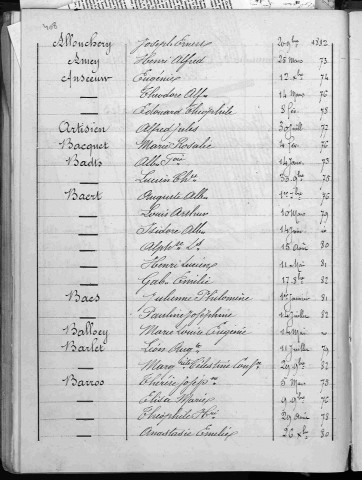 Allonchery Joseph Ernest 20 9bre 1882
Amey Henri Alfred 28 Mars 73
Anseeuw Eugénie 12 Xbre 74
— Théodore Alf. 14 Mars 76
— Edouard Théophile 3 fév. 78
Artisien Alfred Jules 30 Juill. 77
Bacquet Marie Rosalie 4 fév. 76
Badts 14 Janv. 73
— Lucien 78
Baert Auguste Alb. 76
— Louis Arthur 10 Mars 79
— Isidore Alb. 14
— Alph. 15 Août 80
— Henri Lucien 11 Mai 81
— Gab. Emilie 17 82
Baes Julienne Philomène Janvier 81
— Pauline Joséphine Juillet 82
Marie Louise Eugénie 14 Mai
Barlet Léon Aug. 11 Juillet 79
— Célestine 82
Barros Thérèse 5 Mars 73
— Elisée Marie 9 9bre 76
— Théophile 29 Août 78
— Anastasie Emélie 26 Xbre 80